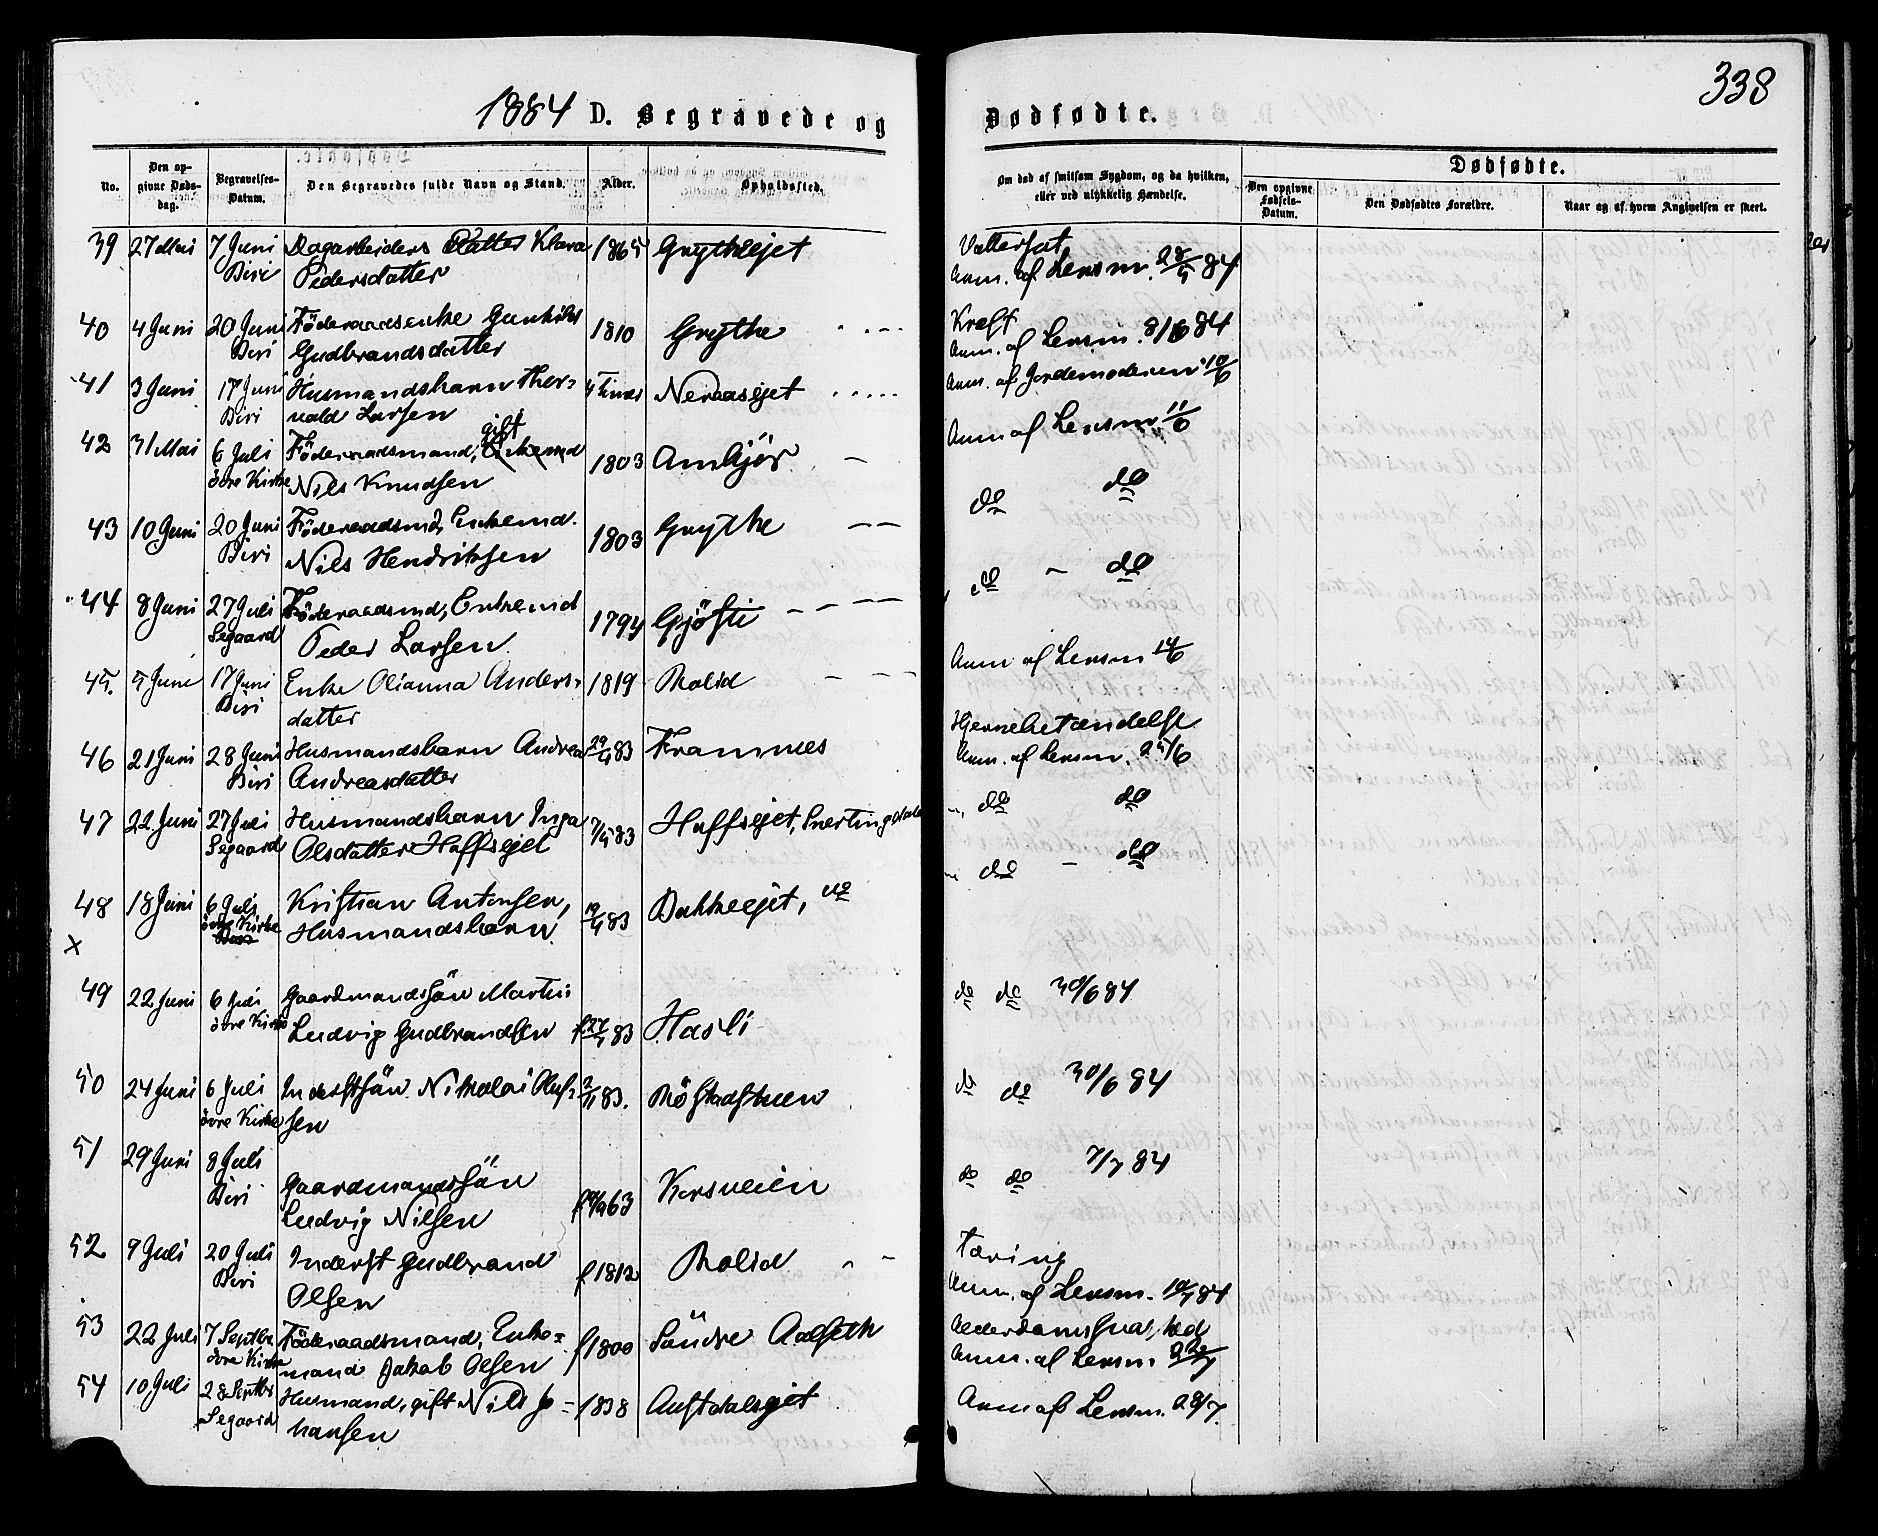 1884 D. Begravede og
No.
Den op-
givne Døds-
dag.
Begravelses-
Datum.
Den Begravedes fulde Navn og Stand.
Alder.
Opholdssted.
39 27 Mai 7 Juni Dagarbeiders Datter Klara 1865 Grytheejet
Biri Pedersdatter
40 4 Juni 20 Juni Föderaadsenke Gunhild 1810 Grythe
Biri Gudbrandsdatter
41 3 Juni 17 Juni Husmandsbarn Thor- 4 Timer Neraasejet
Biri vald Larsen
gift
42 31 Mai 6 Juli Föderaadsmand, Enkemd 1803
övre Kirke Nils Knudsen
43 10 Juni 20 Juni Föderaadsmd, Enkemd. 1803 Grythe
Biri Nils Hendriksen
44 8 Juni 27 Juli Föderaadsmd, Enkemd 1794 Gjöfti
Segaard Peder Larsen
45. 5 Juni 17 Juni Enke Olianna Anders- 1819 Rolid
Biri datter
46 21 Juni 28 Juni Husmandsbarn Andrea 83 Framnes
Biri Andreasdatter
47 22 Juni 27 Juli Husmandsbarn Inga 7/5 83 Hoffsejet, Snertingdalen
Segaard Olsdatter Hoffsejet
48 18 Juni 6 Juli Kristian Antonsen, 83 Bakkeejet, do
x övre Kirke Husmandsbarn
Biri
49 22 Juni 6 Juli Gaardmandssön Martin
övre Kirke Ludvig Gudbrandsen 83 Hasli
50 24 Juni 6 Juli Inderstsön Nikolai Oluf- 83. Röstadstuen
övre Kirke sen
51 29 Juni 8 Juli
Biri Gaardmandssön 63 Korsveien
Ludvig Nilsen
52 9 Juli 20 Juli Inderst Gudbrand f 1812 Rolid
Biri Olsen
53 22 Juli 7 Septbr Föderaadsmand, Enke- f 1800 Söndre Aalseth
övre Kirke mand Jakob Olsen
54 10 Juli 28 Septbr Husmand, gift Nils Jo- 1838 Austdalsejet
Segaard hansen
338
Dødfødte.
Om død af smitsom Sygdom, og da hvilken,
eller ved ulykkelig Hændelse.
Dødfødte.
Den opgivne
Fødsels-
Datum.
Den Dødfødtes Forældre.
Naar og af hvem Angivelsen er skeet.
Vattersot
Anm. af Lensm. 28/5 84
Kræft
Anm. af Lensm. 8/6 84
Anm. af Jordemoderen 10/6
Anm af Lensm 11/6
do do
do - do
Anm af Lensm 14/6
Hjernebetændelse
Anm. af Lensm. 25/6
do do
do - do
do do 30/6 84
do do 30/6 84
do do 7/7 84
Tæring
Anm. af Lensm. 10/7 84
Alderdomssvaghed
Anm. af Lensm 22/7
Anm af Lensm. 28/7.